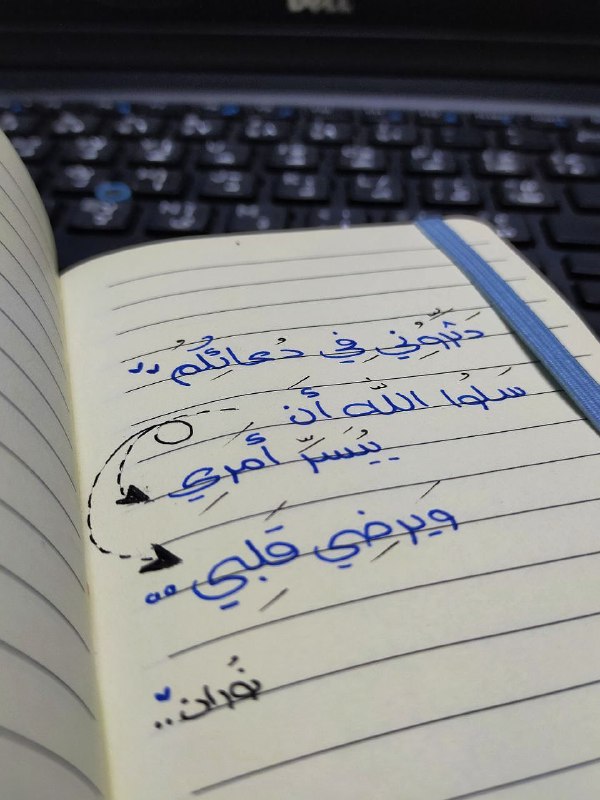 DELL
دَثِّرُوني في دُعائِكُم
سَلوا الله أن
يُيَسِّرَ أمري
ويَرضي قَلبي..
نُوران..